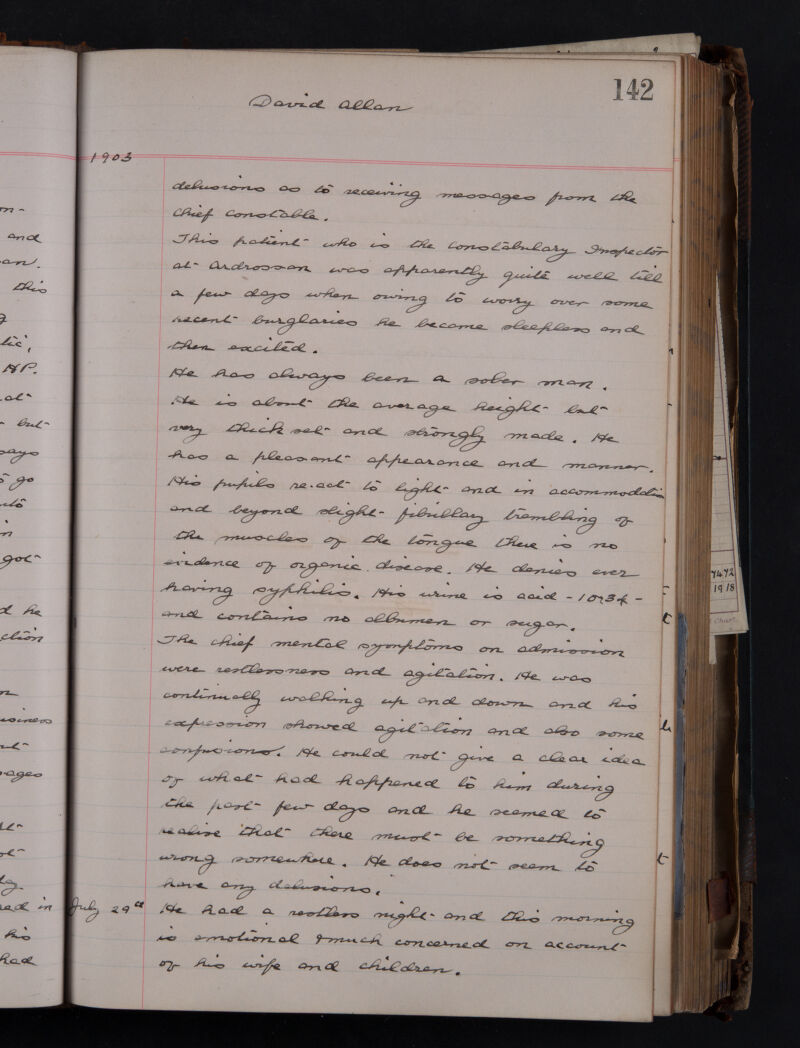 142
David Allan
1903
delusions as to receiving messages from the
chief constable.
This patient who is the constabulary Inspector
at Ardrossan was apparently quite well till
a few days when owing to worry over some
recent burglaries he became sleepless and
then excited.
He has always been a sober man.
He is about the average height but
very thick set and strongly made. He
has a pleasant appearance and manner.
His pupils re.act to light and in accommodation
and beyond slight fibrillary trembling of
the muscles of the tongue there is no
evidence of organic disease. He denies ever
having syphilis. His urine is acid - 1034 -
and contains no albumen or sugar.
The chief mental symptoms on admission
were restlessness and agitation. He was
continually walking up and down and his
expression showed agitation and also some
confusions. He could not give a clear idea
of what had happened to him during
the past few days and he seemed to
realise that there must be something
wrong somewhere. He does not seem to
have any delusions.
July 29th He had a restless night and this morning
is emotional & much concerned on account
of his wife and children.
and
this
HP.
but
says
go
got
he
ction
usiness
ages
in
his
had
7472
1918